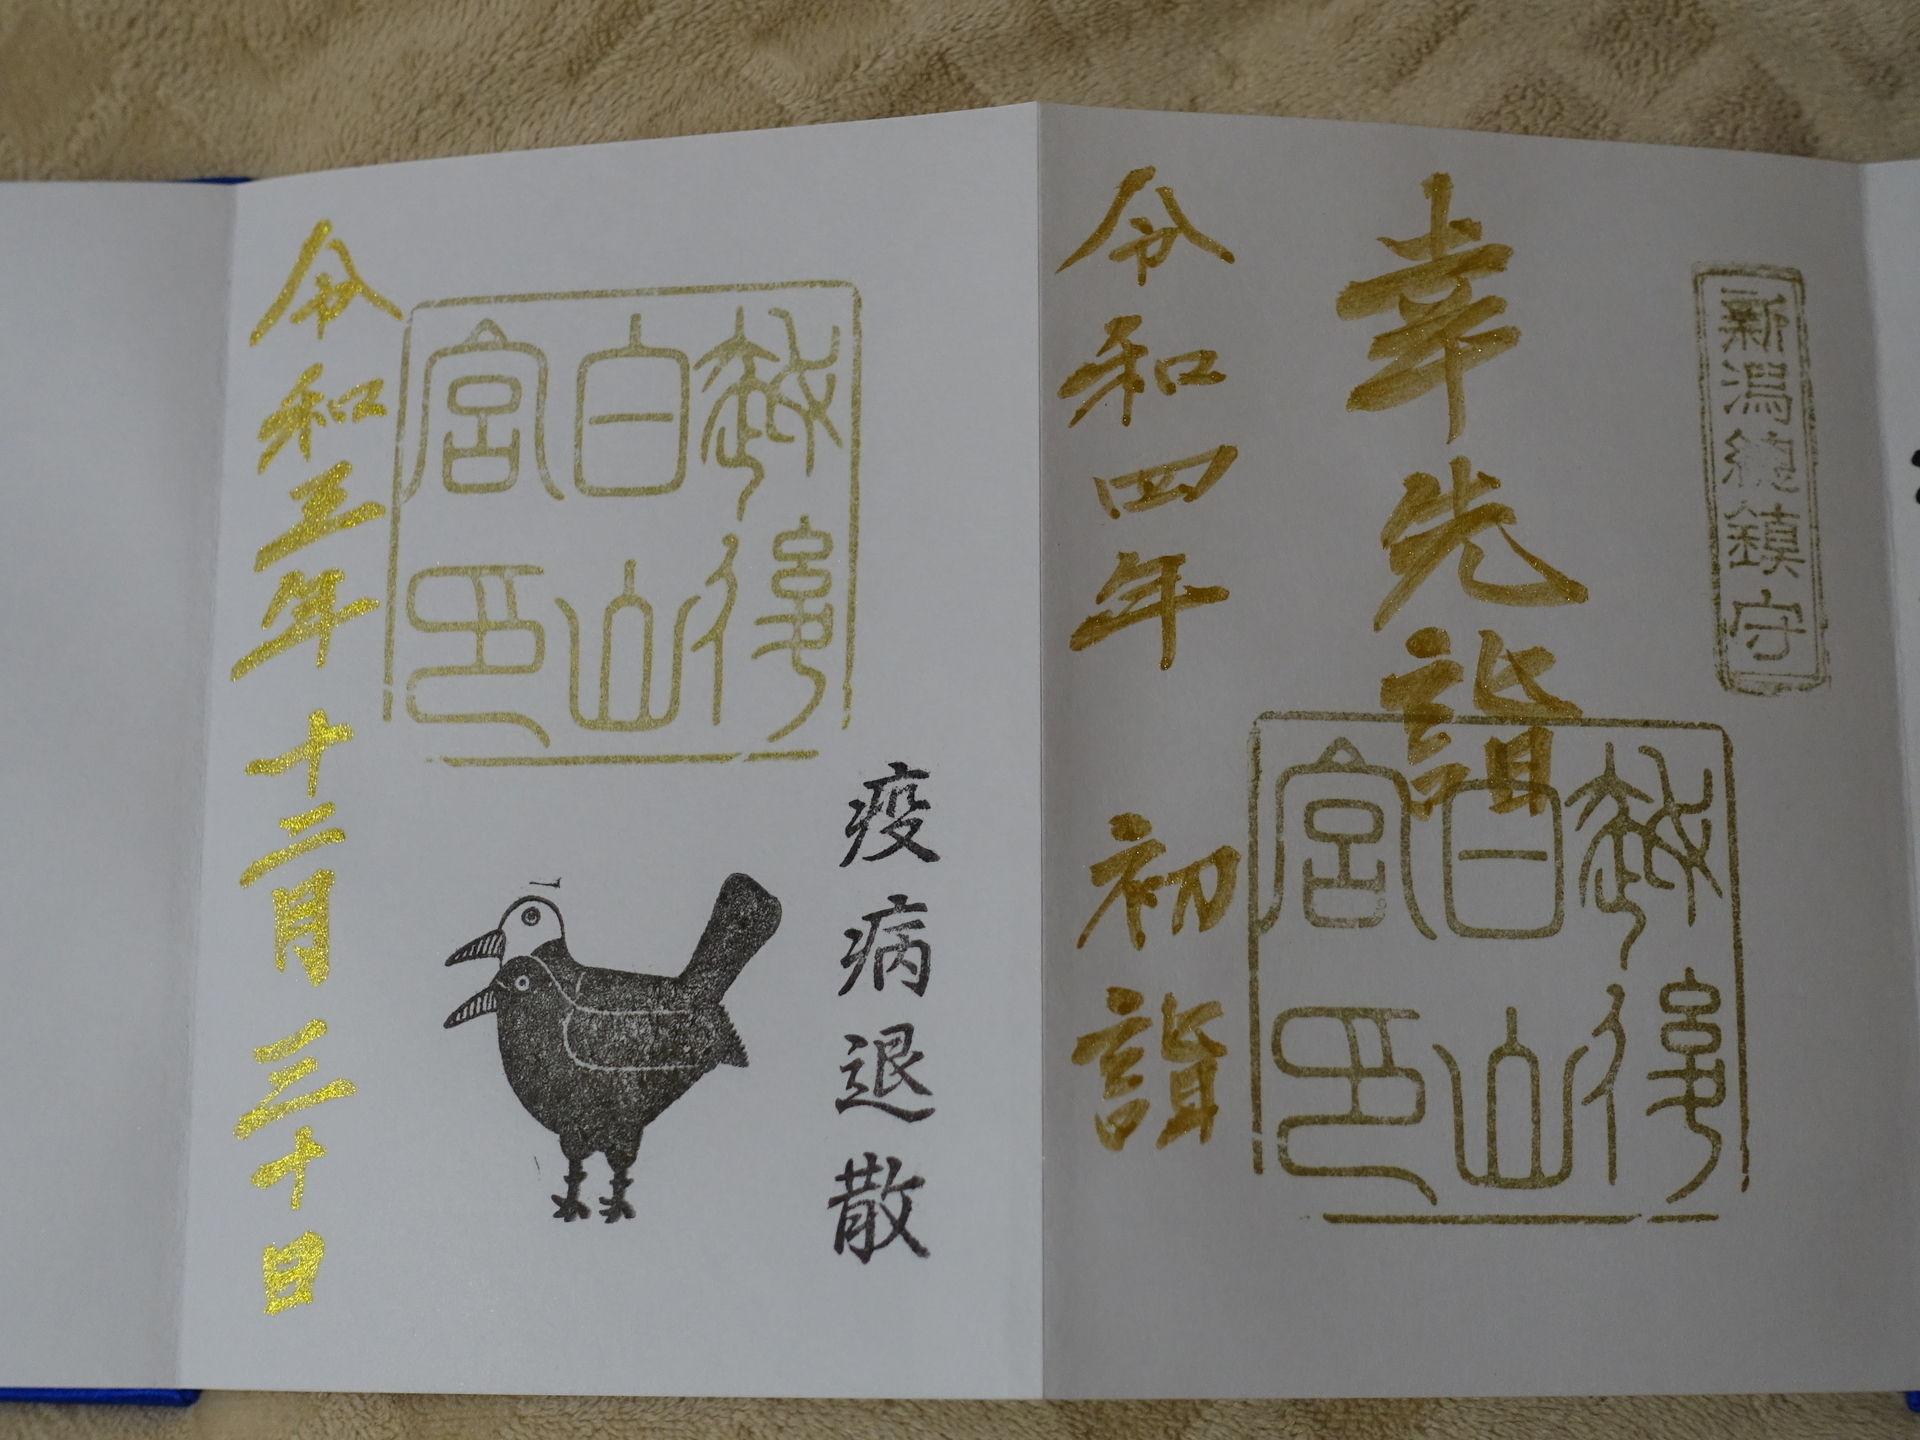 新潟総鎮守
幸先詣
越後
白山
宮印
令和四年 初詣
疫病退散
越後
白山
宮印
令和三年 十二月 三十日